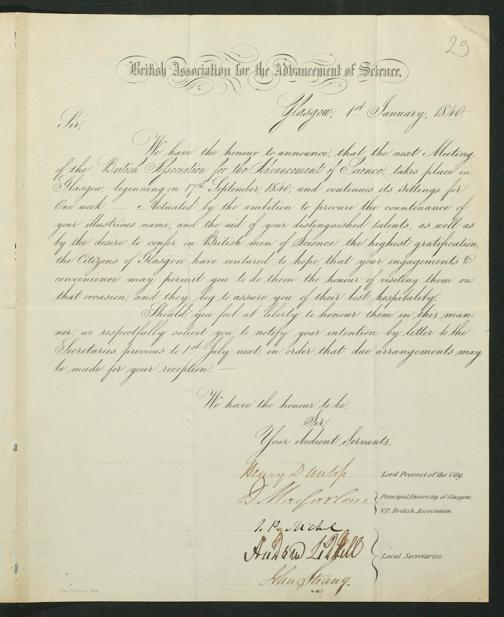 29
British Association for the Advancement of Science.
Glasgow, 1st January, 1840
Sir,
We have the honour to announce, that the next Meeting
of the British Association for the Advancement of Science, takes place in
Glasgow, beginning on 17th September 1840, and continues its Sittings for
One week. — Actuated by the ambition to procure the countenance of
your illustrious name, and the aid of your distinguished talents, as well as
by the desire to confer on British men of Science the highest gratification,
the Citizens of Glasgow have ventured to hope, that your engagements &
convenience may permit you to do them the honour of visiting them on
that occasion, and they beg to assure you of their best hospitality.
Should you feel at liberty to honour them in this man-
ner, we respectfully solicit you to notify your intention by letter to the
Secretaries previous to 1st July next, in order that due arrangements may
be made for your reception. —
We have the honour to be,
Sir,
Your obedient Servants,
Henry Dunlop Lord Provost of the City.
D. Macfarlane Principal, University of Glasgow.
V.P. British Association.
J. P. Nichol
Andrew Liddell Local Secretaries.
John Strang.